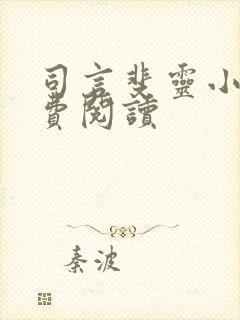 司言斐靈小
費閱讀
秦波